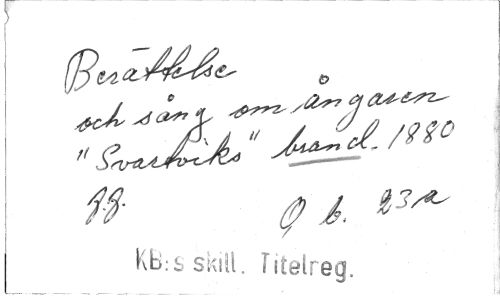 Berättelse
och sång om ångaren
"Svartviks" brand. 1880
Q b. 23 a
KB:s skill. Titelreg.